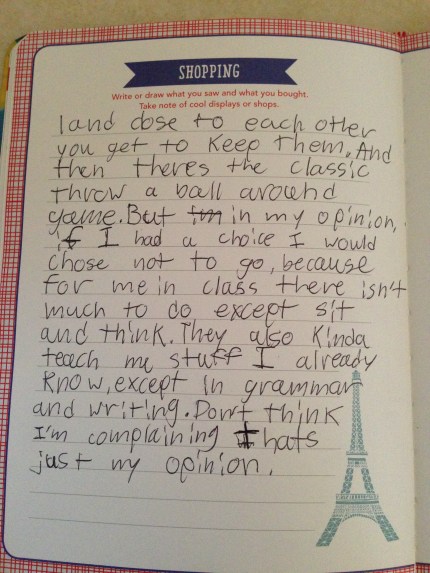 SHOPPING
Write or draw what you saw and what you bought.
Take note of cool displays or shops.
land close to each other
you get to keep them. And
then theres the classic
throw a ball around
game. But im in my opinion,
if I had a choice I would
chose not to go, because
for me in class there isn't
much to do except sit
and think. They also kinda
teach me stuff I already
know, except in grammar
and writing. Don't think
I'm complaining thats
just my opinion.